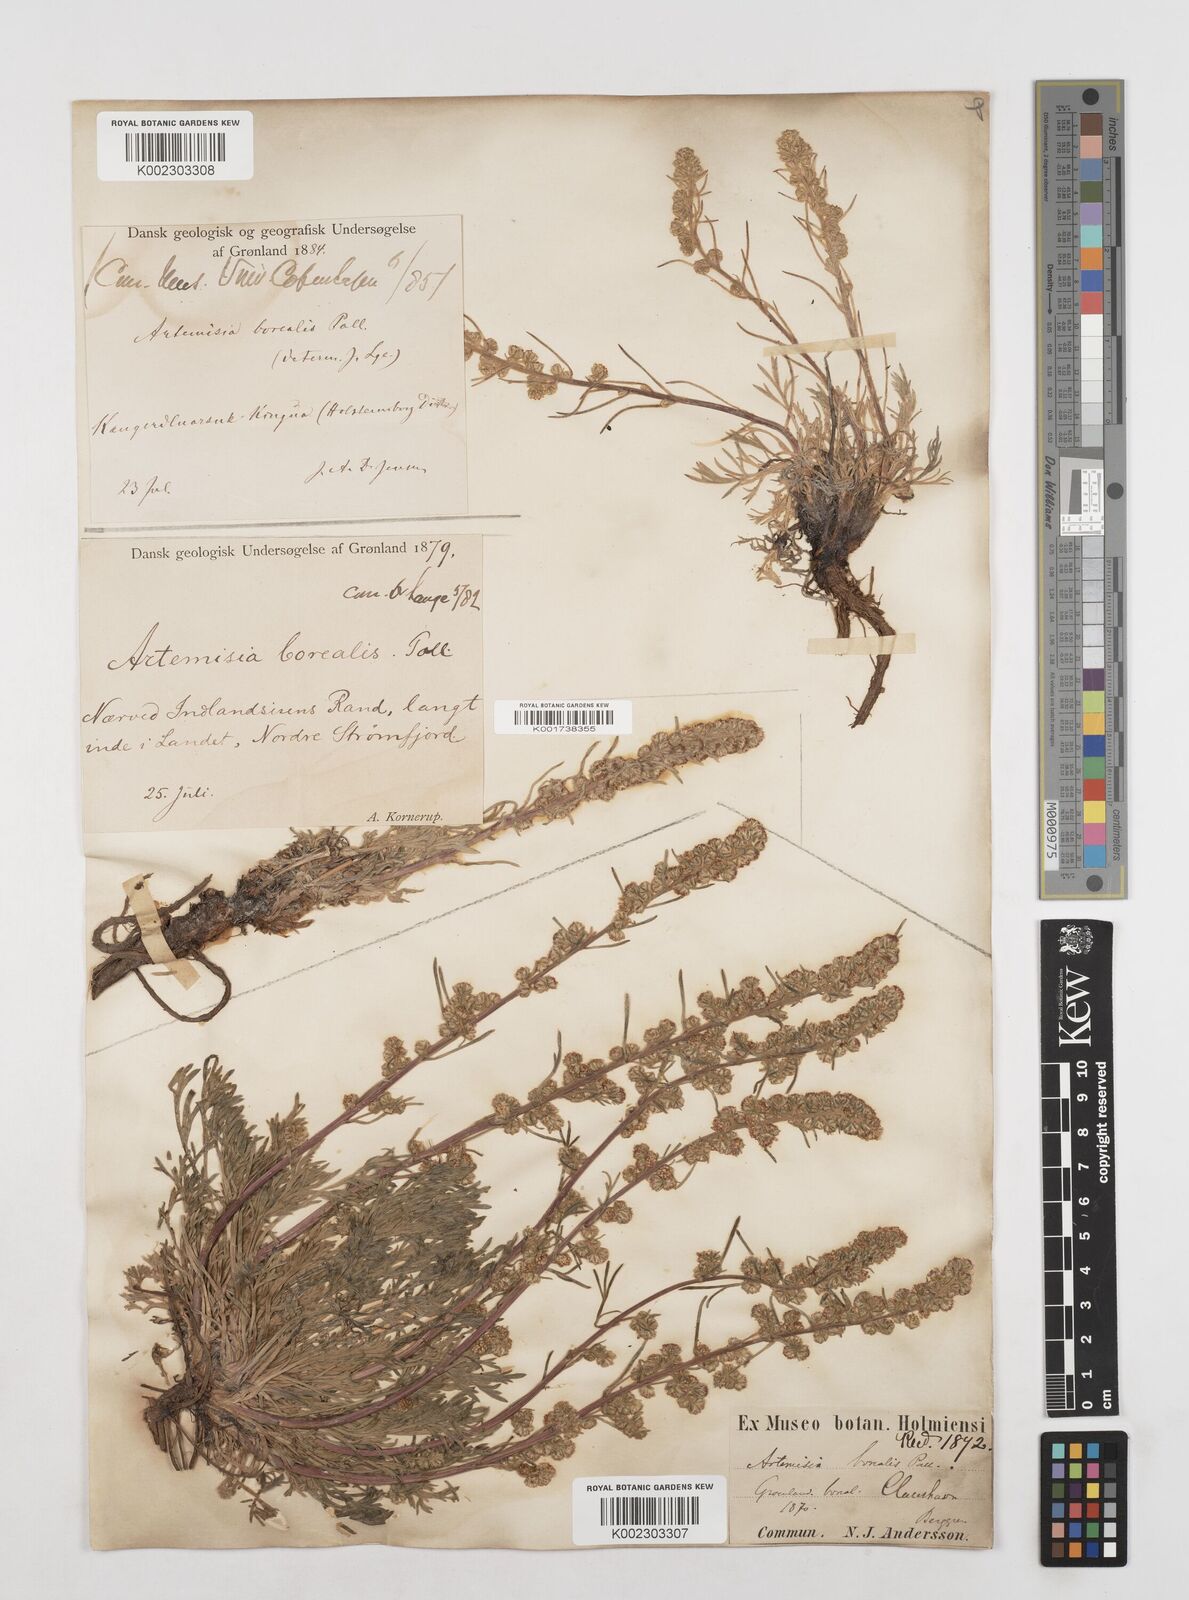 ROYAL BOTANIC GARDENS KEW
K002303308
Dansk geologisk og geografisk Undersøgelse
af Grønland 1884.
Univ Copenhagen 6/85
Artemisia borealis Pall.
(determ. J. Lge.)
Kangerdluarsuk-Kongua (Holstensborg Distr.)
J. A. D. Jensen
23 Jul.
Dansk geologisk Undersøgelse af Grønland 1879.
Com. Dr Lange 5/82
Artemisia borealis. Pall.
Nærved Indlandsisens Rand, langt
inde i Landet, Nordre Strømfjord
25. Juli.
A. Kornerup.
ROYAL BOTANIC GARDENS KEW
K001738355
Ex Museo botan. Holmiensi
Recd. 1872.
Artemisia borealis Pall.
Groenland. boreal. Claushavn
1870.
Berggren
Commun. N. J. Andersson.
ROYAL BOTANIC GARDENS KEW
K002303307
Don Williams
M000975
centimeters
Kew
Royal Botanic Gardens
0 1 2 3 4 5 6 7 8 9 10
cm
copyright reserved